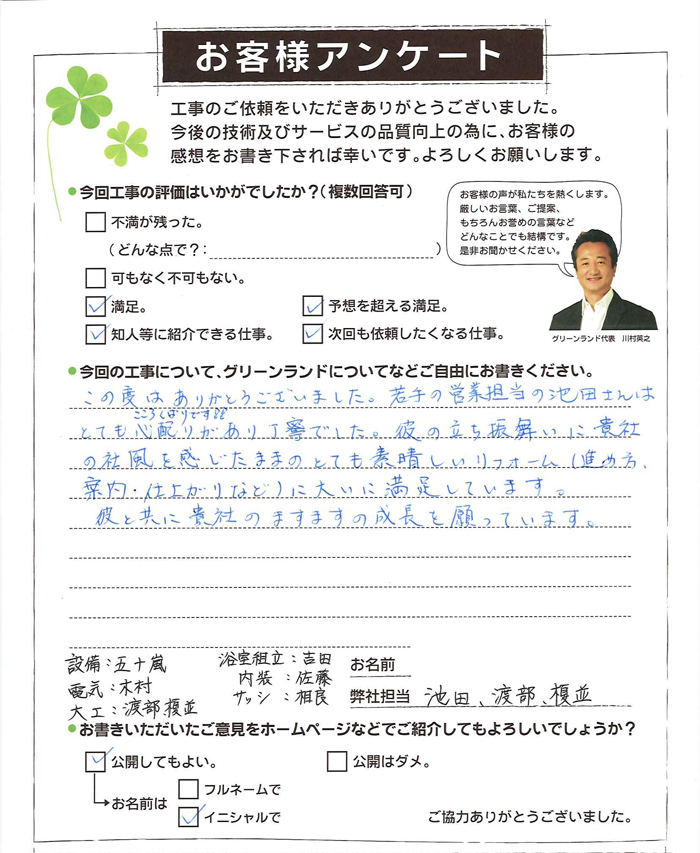 お客様アンケート
工事のご依頼をいただきありがとうございました。
今後の技術及びサービスの品質向上の為に、お客様の
感想をお書き下されば幸いです。よろしくお願いします。
●今回工事の評価はいかがでしたか?(複数回答可)
不満が残った。
(どんな点で?: )
可もなく不可もない。
満足。
予想を超える満足。
知人等に紹介できる仕事。
次回も依頼したくなる仕事。
お客様の声が私たちを熱くします。
厳しいお言葉、ご提案、
もちろんお誉めの言葉など
どんなことでも結構です。
是非お聞かせください。
グリーンランド代表 川村英之
●今回の工事について、グリーンランドについてなどご自由にお書きください。
この度はありがとうございました。若手の営業担当の池田さんは
こころくばりです!!
とても心配りがあり丁寧でした。彼の立ち振舞いに貴社
の社風を感じたままのとても素晴しいリフォーム(進め方、
案内・仕上がりなど)に大いに満足しています。
彼と共に貴社のますますの成長を願っています。
設備:五十嵐
電気:木村
大工:渡部、榎並
浴室組立:吉田
内装:佐藤
サッシ:相良
お名前
弊社担当 池田、渡部、榎並
●お書きいただいたご意見をホームページなどでご紹介してもよろしいでしょうか?
公開してもよい。
公開はダメ。
お名前は
フルネームで
イニシャルで
ご協力ありがとうございました。